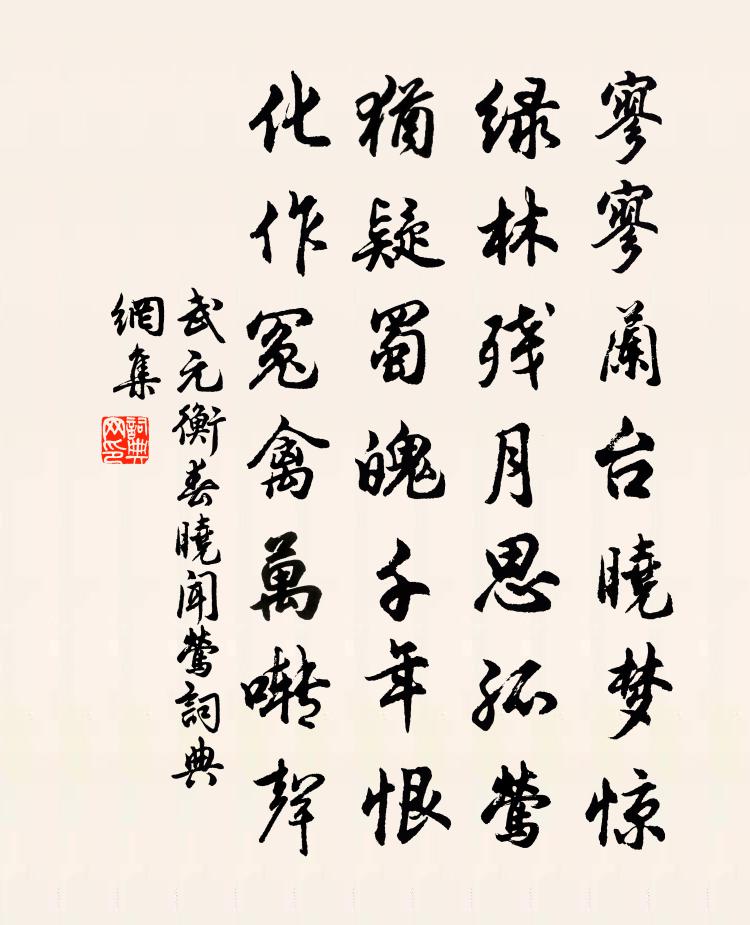 寥寥蘭台曉梦惊
绿林残月思孤莺
猶疑蜀魄千年恨
化作冤禽萬囀聲
武元衡春曉聞莺詞典
網集
詞典
网印